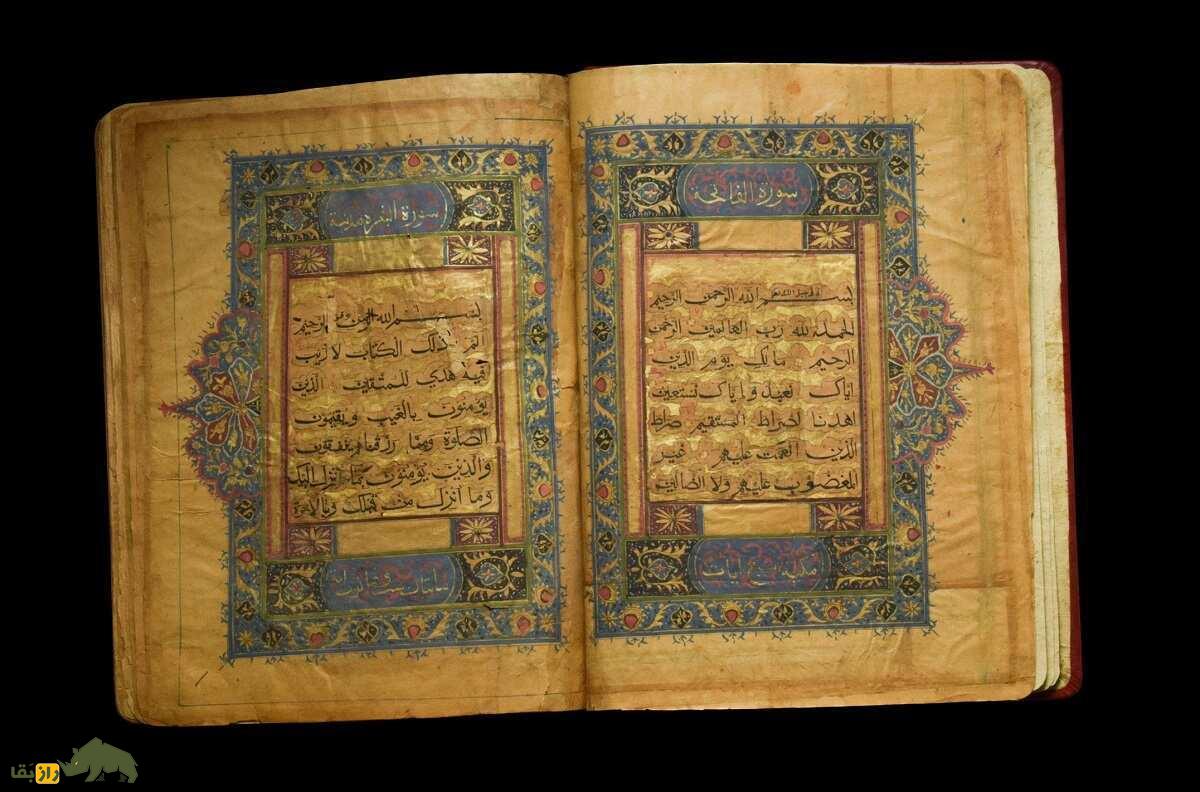 سورة الفاتحة
بسم الله الرحمن الرحيم
الحمد لله رب العالمين الرحمن
الرحيم مالك يوم الدين
اياك نعبد واياك نستعين
اهدنا الصراط المستقيم صراط
الذين انعمت عليهم غير
المغضوب عليهم ولا الضالين
مكية سبع ايات
سورة البقره مدنية
بسم الله الرحمن الرحيم
الم ذلك الكتاب لا ريب
فيه هدي للمتقين الذين
يؤمنون بالغيب ويقيمون
الصلوة ومما رزقناهم ينفقون
والذين يؤمنون بما انزل اليك
وما انزل من قبلك وبالاخرة
راز بقا